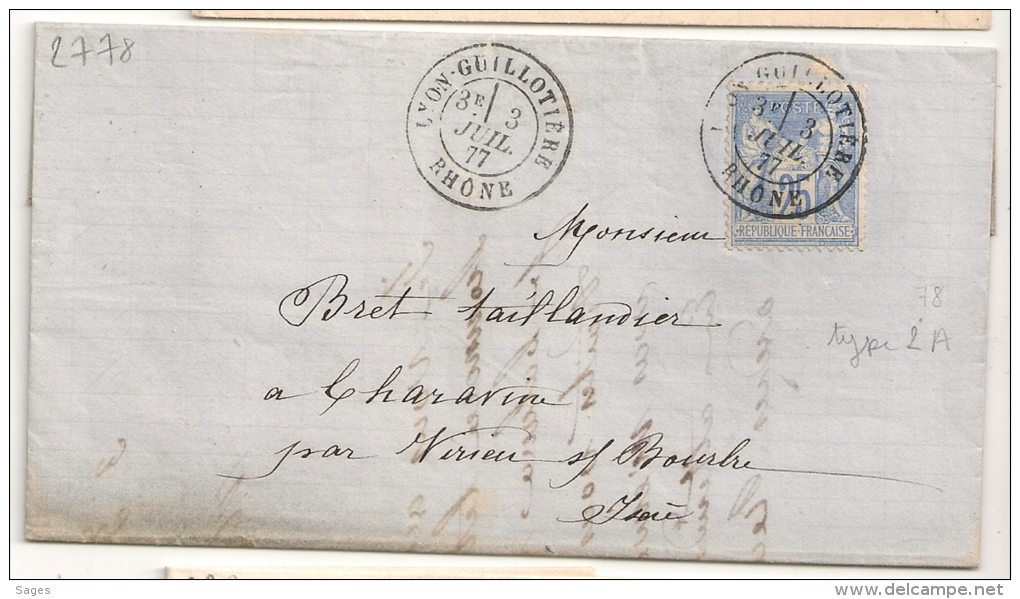 2778
LYON-GUILLOTIÈRE
3E 3
JUIL.
77
RHÔNE
GUILLOTIÈRE
3E 3
JUIL.
77
RHÔNE
POSTE
25
REPUBLIQUE FRANÇAISE
Monsieur
Bret taillandier
a Charavine
par Virieu s/ Bourbre
Isère
78
type 2 A
Sages
www.delcampe.net